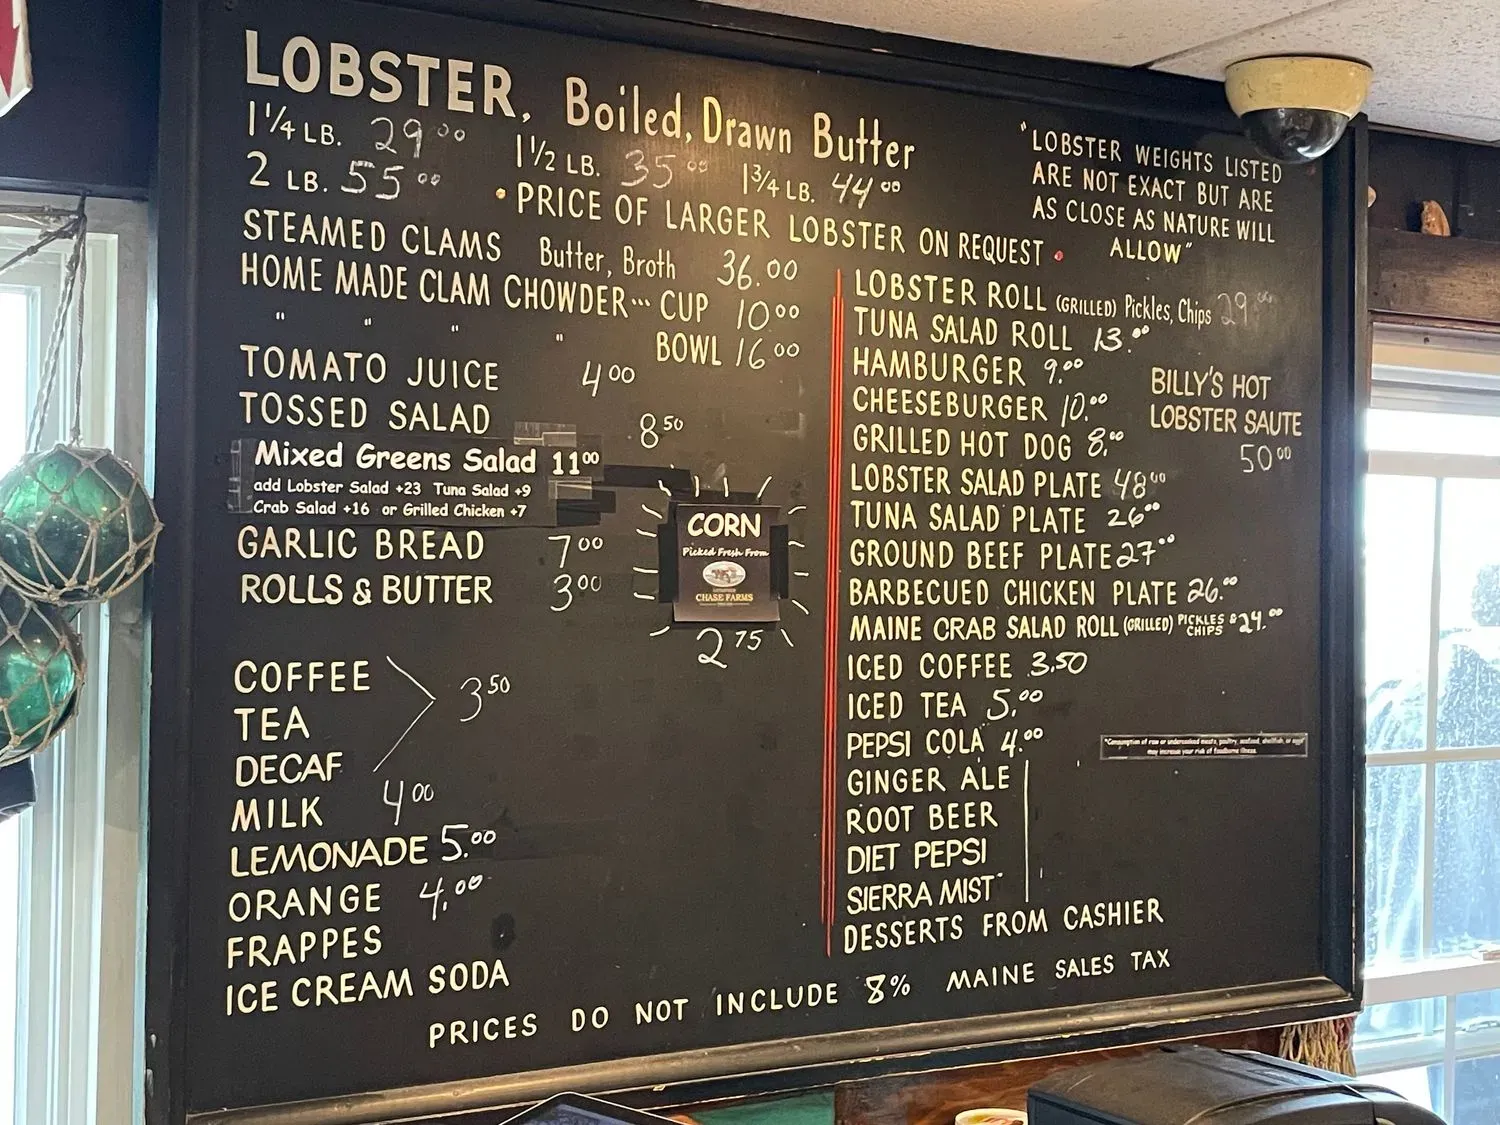 LOBSTER, Boiled, Drawn Butter
1 1/4 LB. 29.00 1 1/2 LB. 35.00 1 3/4 LB. 44.00
2 LB. 55.00 • PRICE OF LARGER LOBSTER ON REQUEST •
"LOBSTER WEIGHTS LISTED
ARE NOT EXACT BUT ARE
AS CLOSE AS NATURE WILL
ALLOW"
STEAMED CLAMS Butter, Broth 36.00
HOME MADE CLAM CHOWDER... CUP 10.00
" " " " BOWL 16.00
TOMATO JUICE 4.00
TOSSED SALAD 8.50
Mixed Greens Salad 11.00
add Lobster Salad +23 Tuna Salad +9
Crab Salad +16 or Grilled Chicken +7
GARLIC BREAD 7.00
ROLLS & BUTTER 3.00
CORN
Picked Fresh From
CHASE FARMS
2.75
COFFEE
TEA 3.50
DECAF
MILK 4.00
LEMONADE 5.00
ORANGE 4.00
FRAPPES
ICE CREAM SODA
LOBSTER ROLL (GRILLED) Pickles, Chips 29.00
TUNA SALAD ROLL 13.00
HAMBURGER 9.00
CHEESEBURGER 10.00
GRILLED HOT DOG 8.00
BILLY'S HOT
LOBSTER SAUTE
50.00
LOBSTER SALAD PLATE 48.00
TUNA SALAD PLATE 26.00
GROUND BEEF PLATE 27.00
BARBECUED CHICKEN PLATE 26.00
MAINE CRAB SALAD ROLL (GRILLED) PICKLES & CHIPS 24.00
ICED COFFEE 3.50
ICED TEA 5.00
PEPSI COLA 4.00
GINGER ALE
ROOT BEER
DIET PEPSI
SIERRA MIST
*Consumption of raw or undercooked meats, poultry, seafood, shellfish, or eggs
may increase your risk of foodborne illness.
DESSERTS FROM CASHIER
PRICES DO NOT INCLUDE 8% MAINE SALES TAX